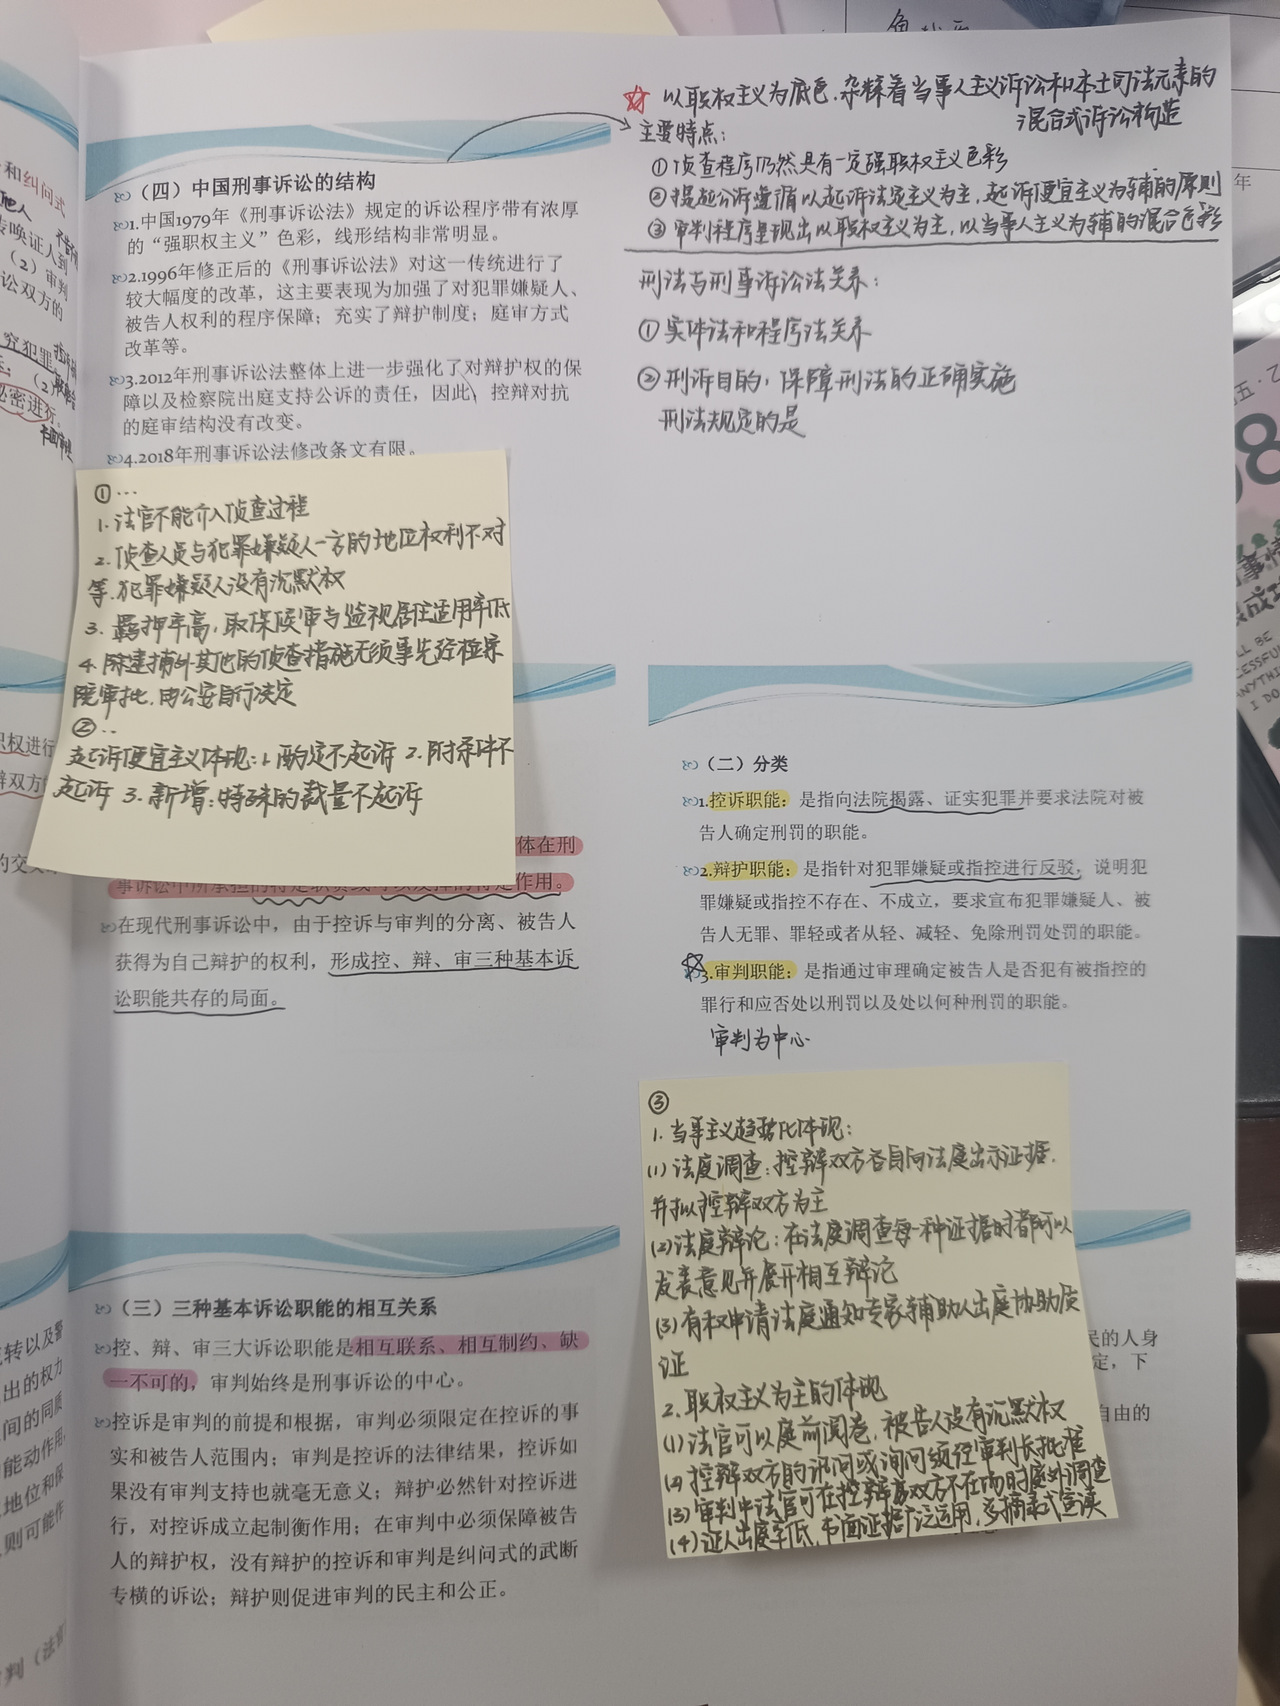 ☆ 以职权主义为底色,杂糅着当事人主义诉讼和本土司法元素的
混合式诉讼构造
主要特点：
①侦查程序仍然具有一定强职权主义色彩
②提起公诉遵循以起诉法定主义为主，起诉便宜主义为辅的原则
③审判程序呈现出以职权主义为主，以当事人主义为辅的混合色彩
刑法与刑事诉讼法关系：
①实体法和程序法关系
②刑诉目的：保障刑法的正确实施
刑法规定的是
（四）中国刑事诉讼的结构
1.中国1979年《刑事诉讼法》规定的诉讼程序带有浓厚
的“强职权主义”色彩，线形结构非常明显。
2.1996年修正后的《刑事诉讼法》对这一传统进行了
较大幅度的改革，这主要表现为加强了对犯罪嫌疑人、
被告人权利的程序保障；充实了辩护制度；庭审方式
改革等。
3.2012年刑事诉讼法整体上进一步强化了对辩护权的保
障以及检察院出庭支持公诉的责任，因此，控辩对抗
的庭审结构没有改变。
4.2018年刑事诉讼法修改条文有限。
①…
1.法官不能介入侦查过程
2.侦查人员与犯罪嫌疑人一方的地位权利不对
等.犯罪嫌疑人没有沉默权
3.羁押率高,取保候审与监视居住适用率低
4.除逮捕外其他的侦查措施无须事先经检察
院审批,由公安自行决定
②…
起诉便宜主义体现:1.酌定不起诉 2.附条件不
起诉 3.新增:特殊的裁量不起诉
体在刑
事诉讼中所承担的特定职责或可以发挥的特定作用。
在现代刑事诉讼中，由于控诉与审判的分离、被告人
获得为自己辩护的权利，形成控、辩、审三种基本诉
讼职能共存的局面。
（二）分类
1.控诉职能：是指向法院揭露、证实犯罪并要求法院对被
告人确定刑罚的职能。
2.辩护职能：是指针对犯罪嫌疑或指控进行反驳，说明犯
罪嫌疑或指控不存在、不成立，要求宣布犯罪嫌疑人、被
告人无罪、罪轻或者从轻、减轻、免除刑罚处罚的职能。
☆3.审判职能：是指通过审理确定被告人是否犯有被指控的
罪行和应否处以刑罚以及处以何种刑罚的职能。
审判为中心
③
1.当事主义趋势化体现：
(1)法庭调查:控辩双方各自向法庭出示证据.
并拟控辩双方为主
(2)法庭辩论:在法庭调查每一种证据时都可以
发表意见并展开相互辩论
(3)有权申请法庭通知专家辅助人出庭协助质
证
2.职权主义为主的体现
(1)法官可以庭前阅卷,被告人没有沉默权
(2)控辩双方的讯问或询问须经审判长批准
(3)审判中法官可在控辩双方不在场时庭外调查
(4)证人出庭率低,书面证据广泛运用,多摘录式宣读
（三）三种基本诉讼职能的相互关系
控、辩、审三大诉讼职能是相互联系、相互制约、缺
一不可的，审判始终是刑事诉讼的中心。
控诉是审判的前提和根据，审判必须限定在控诉的事
实和被告人范围内；审判是控诉的法律结果，控诉如
果没有审判支持也就毫无意义；辩护必然针对控诉进
行，对控诉成立起制衡作用；在审判中必须保障被告
人的辩护权，没有辩护的控诉和审判是纠问式的武断
专横的诉讼；辩护则促进审判的民主和公正。
民的人身
定，下
自由的
和纠问式
传唤证人到
（2）审判
讼双方的
究犯罪
（2）
秘密进行。
职权进行
辩双方
的交
转以及警
出的权力
间的同质
能动作用
地位和保
则可能作
判（法官
年